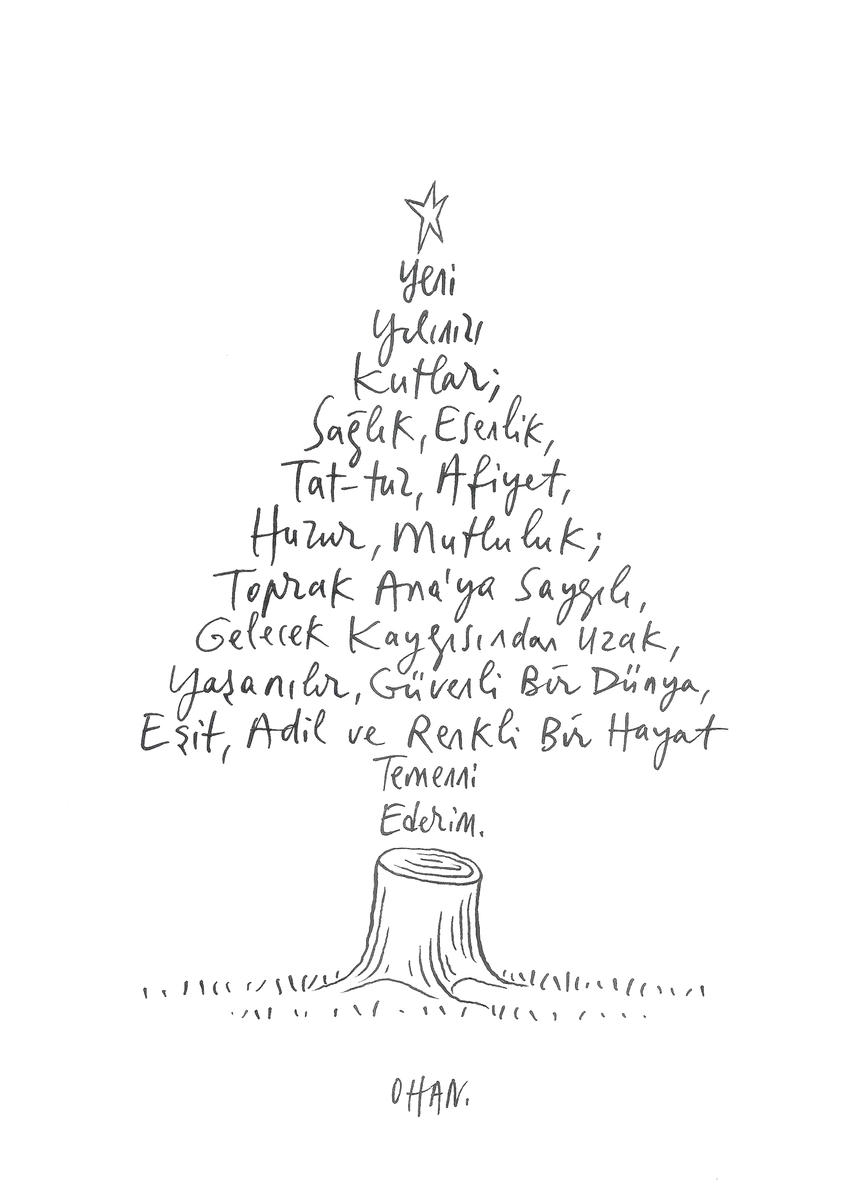 Yeni
Yılınızı
Kutlar;
Sağlık, Esenlik,
Tat-tuz, Afiyet,
Huzur, Mutluluk;
Toprak Ana'ya Saygılı,
Gelecek Kaygısından Uzak,
Yaşanılır, Güvenli Bir Dünya,
Eşit, Adil ve Renkli Bir Hayat
Temenni
Ederim.
OHAN.